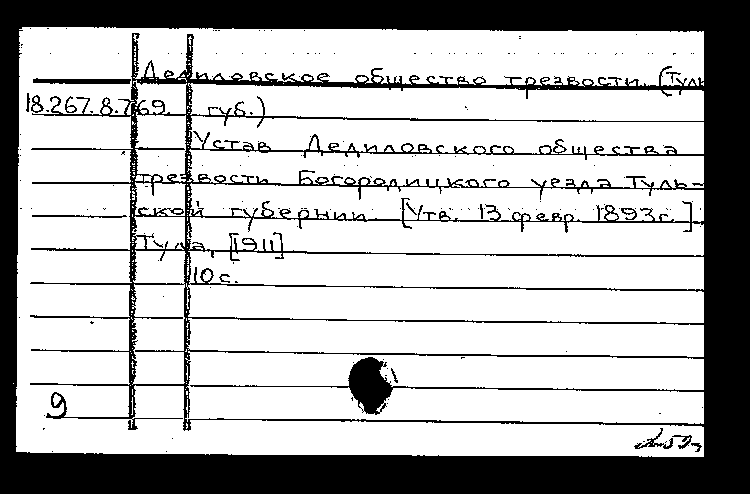 Дедиловское общество трезвости. (Туль
18.267.8.769. губ.)
Устав Дедиловского общества
трезвости Богородицкого уезда Туль-
ской губернии. [Утв. 13 февр. 1893 г.].
Тула, [1911]
10 с.
9